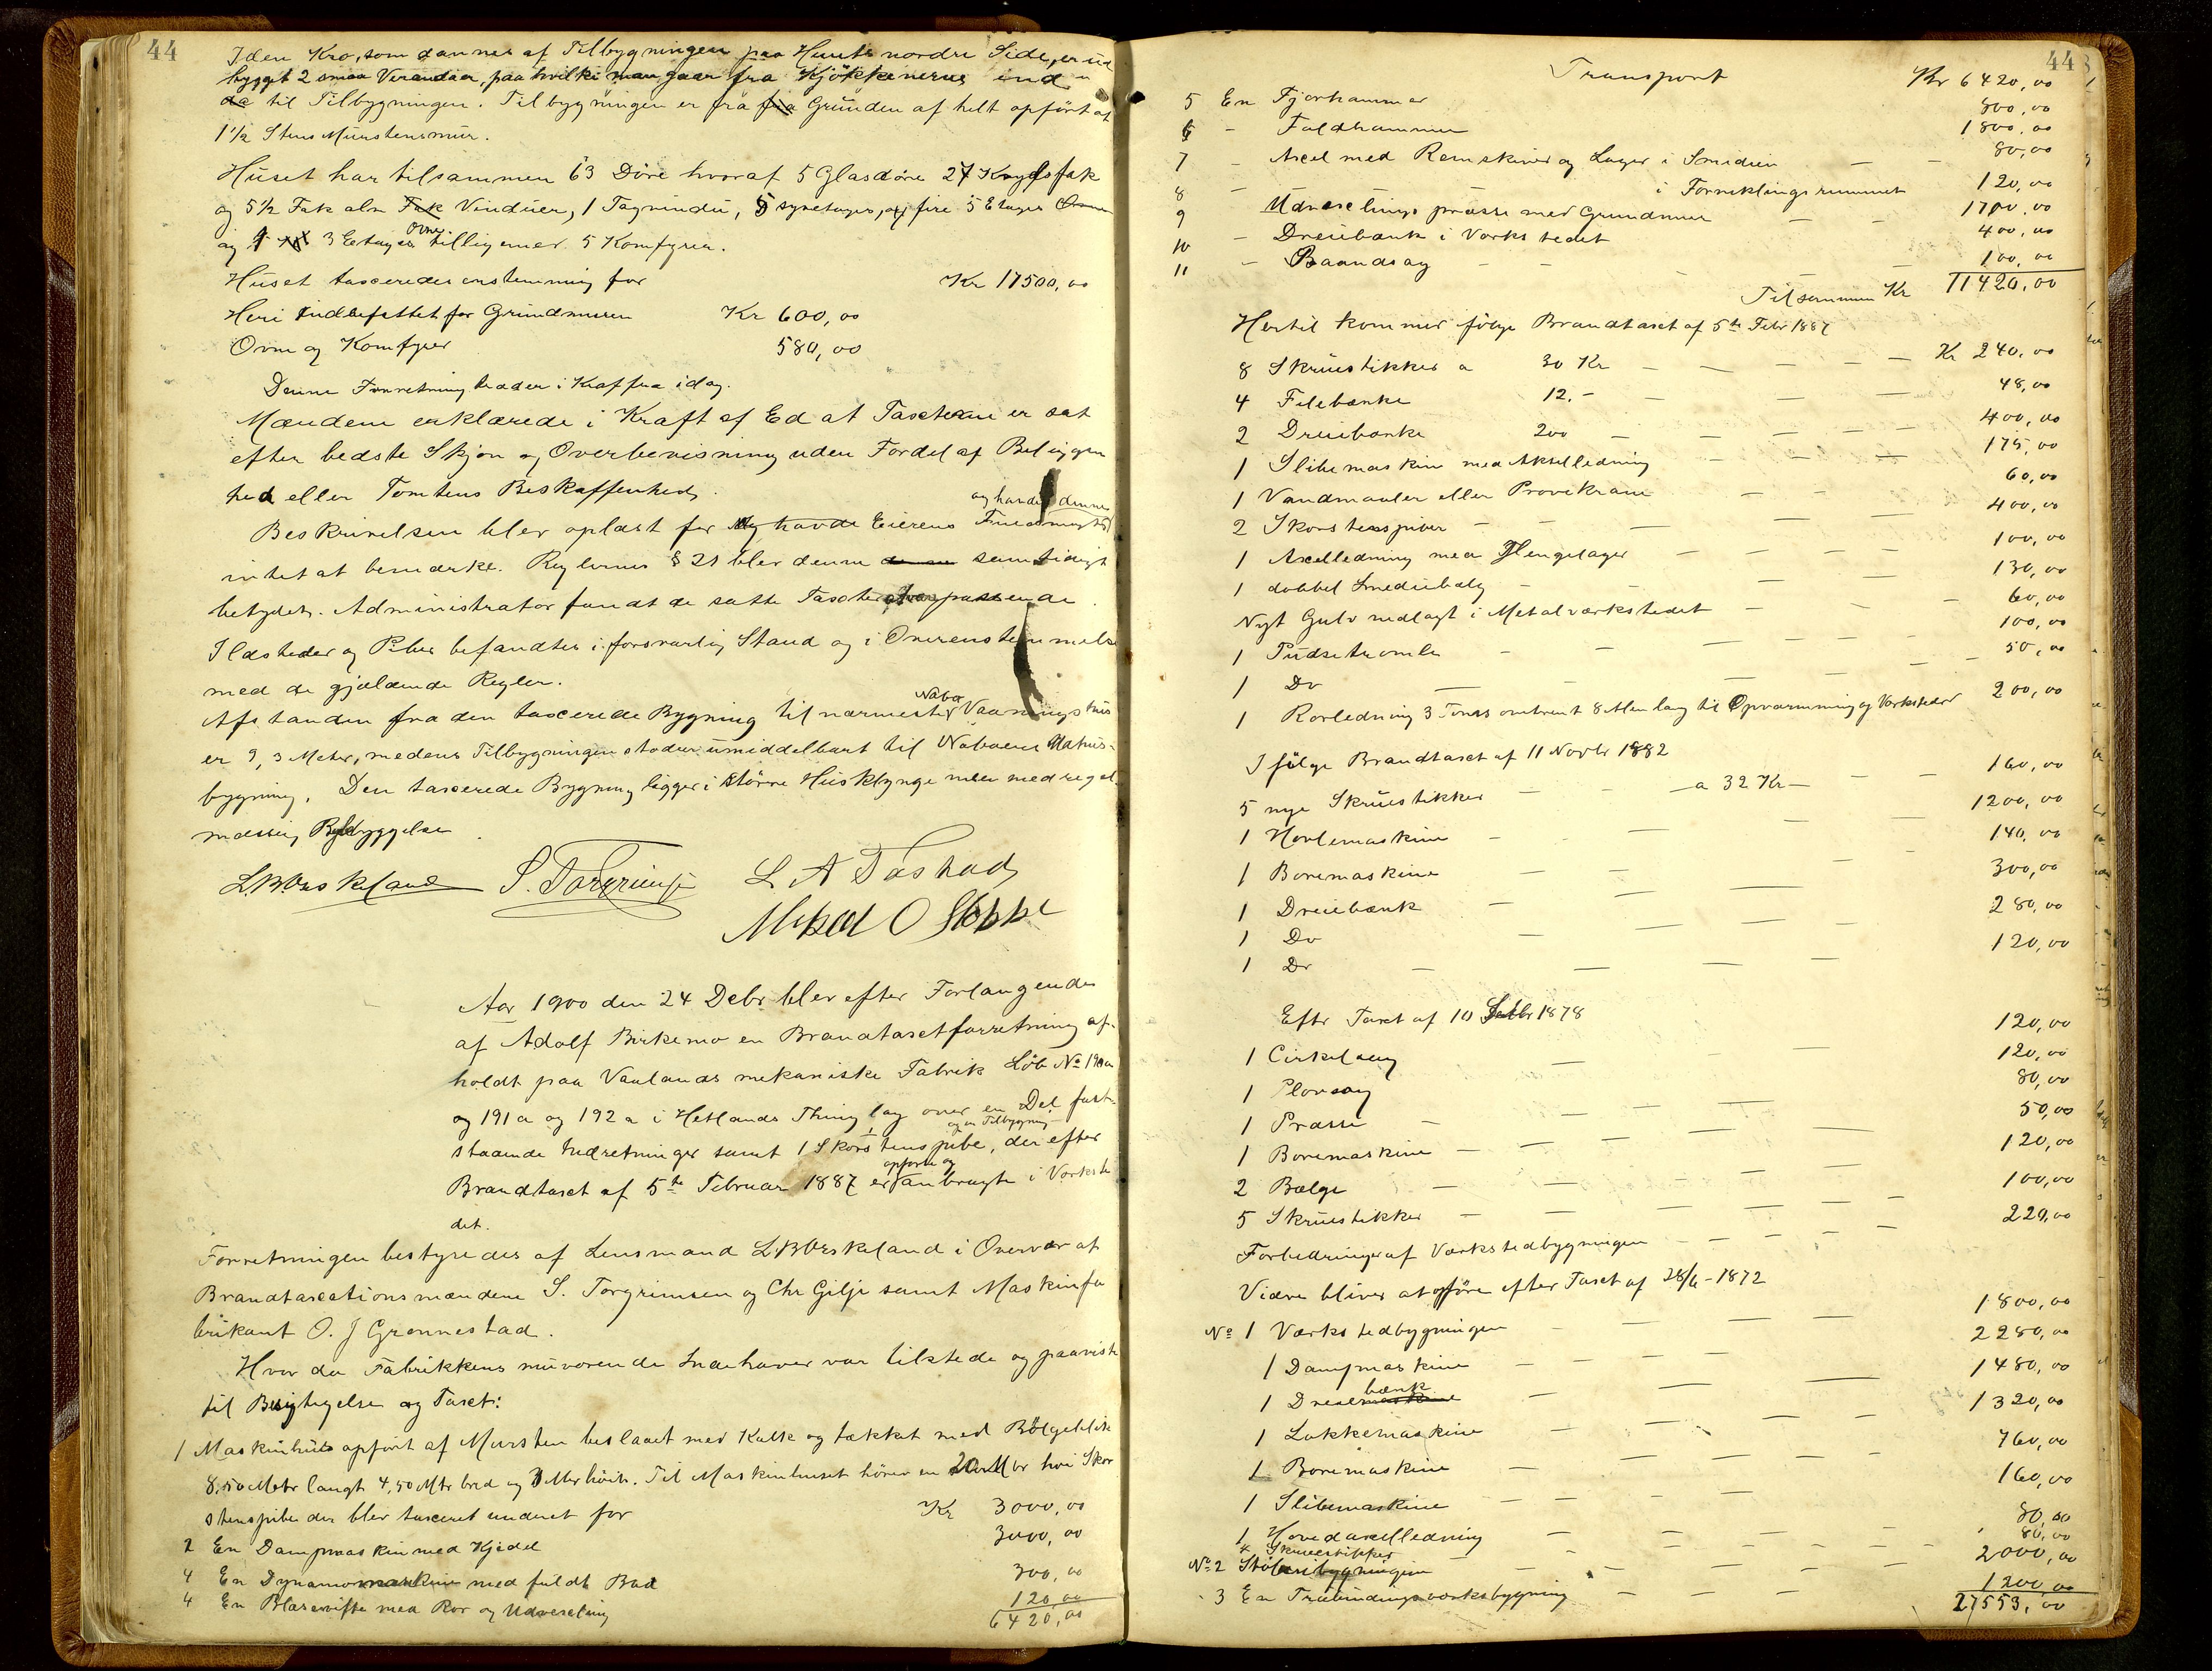 44
I den Kro, som dannes af Tilbygningen paa Husets nordre Side, er ud
bygget 2 smaa Verandaer, paa hvilke man gaar fra Kjøkkenerne ind
da til Tilbygningen. Tilbygningen er fra fra Grunden af helt opført af
1 1/2 Stens Murstensmur.
Huset har tilsammen 63 Døre hvoraf 5 Glasdøre 27 Krydsfak
og 5 1/2 Fak alm Fak Vinduer, 1 Tagvindu, 5 syvetages, og fire 5 Etages Ovne
og 1 3 Etages Ovne tilligemed 5 Komfyrer.
Huset taxeredes enstemmig for Kr 17500,00
Heri indbefattet for Grundmuren Kr 600,00
Ovne og Komfyrer 580,00
Denne Forretning træder i Kraft fra idag.
Mændene erklærede i Kraft af Ed at Taxterne er sat
efter bedste Skjøn og Overbevisning uden Fordel af Beliggen
hed eller Tomtens Beskaffenhed.
Beskrivelsen blev oplæst for og havde Eierens Fuldmægtig og havde denne
intet at bemærke. Reglernes § 21 blev denne denne samtidigt
betydet. Administrator fandt de satte Taxter passende.
Ildsteder og Piber befandtes i forsvarlig Stand og i Overenstemmelse
med de gjældende Regler.
Afstanden fra den taxerede Bygning til nærmeste Nabo Vaaningshus
er 9,3 Meter, medens Tilbygningen støder umiddelbart til Naboens Udhus-
bygning. Den taxerede Bygning ligger i større Husklynge men med regel
mæssig Bebyggelse.
L.B. Orskeland S. Torgrimsen L A Tastad
Mikal O Stokke
Aar 1900 den 24 Debr blev efter Forlangende
af Adolf Birkemo en Brandtaxtforretning af-
holdt paa Vaalands mekaniske Fabrik Løb No 190a
og 191a og 192a i Hetlands Thinglag over en Del fast-
staaende Indretninger samt 1 Skorstenspibe og en Tilbygning, der efter
Brandtaxt af 5te Februar 1887 er opførte og anbragte i Værkste
det.
Forretningen bestyredes af Lensmand L B Orskeland i Overvær af
Brandtaxationsmændene S. Torgrimsen og Chr Gilje samt Maskinfa
brikant O. J Grønnestad.
Hvor da Fabrikkens nuværende Indehaver var tilstede og paaviste
til Besigtigelse og Taxt:
1 Maskinhus opført af Mursten beslaaet med Kalk og tækket med Bølgeblik
8,50 Metr langt 4,50 Mtr bred og 3 Mtr høit. Til Maskinhuset hører en 20 Mtr høi Skor
stenspibe der blev taxeret under et for Kr 3000,00
2 En Dampmaskin med Kjedel 3000,00
4 En Dynamomaskine med fuldt Bad 300,00
4 En Blæsevifte med Rør og Udvexling 120,00
6420,00
443
Transport Kr 6420,00
5 En Fjærhammer 800,00
6 - Faldhammer 1800,00
7 - Axel med Remskiver og Lager i Smidien 80,00
8 - i Forniklingsrummet 120,00
9 Udvexlings presse med Grundmur 1700,00
10 - Dreiebænk i Værkstedet 400,00
11 - Baandsag 100,00
Tilsammen Kr 11420,00
Hertil kommer følge Brandtaxt af 5te Febr 1887
8 Skruestikker a 30 Kr Kr 240,00
4 Filebænke 12.- 48,00
2 Dreiebænke 200 400,00
1 Slibemaskine med Akselledning 175,00
1 Vandmaaler eller Prøvekrane 60,00
2 Skorstenspiber 400,00
1 Axelledning med Hengelager 100,00
1 dobbel Smediebælg 130,00
Nyt Gulv nedlagt i Metalværkstedet 60,00
1 Pudsetromle 100,00
1 Do 50,00
1 Rørledning 3 Toms omtrent 8 Alen lang til Opvarmning og Værksteder 200,00
Ifølge Brandtaxt af 11 Novbr 1882
5 nye Skruestikker a 32 Kr 160,00
1 Høvlemaskine 1200,00
1 Boremaskine 140,00
1 Dreiebænk 300,00
1 Do 280,00
1 Do 120,00
Eftr Taxt af 10 1878
1 Cirkelsag 120,00
1 Plovsag 120,00
1 Presse 80,00
1 Boremaskine 50,00
2 Bælge 120,00
5 Skruestikker 100,00
Forbedringer af Værkstedbygningen 220,00
Videre bliver at opføre efter Taxt af 28/6-1872
No 1 Værkstedbygningen 1800,00
1 Dampmaskine 2280,00
1 Dreiemaskine bænk 1480,00
1 Lokkemaskine 1320,00
1 Boremaskine 760,00
1 Slibemaskine 160,00
1 Hovedaxelledning 80,00
4 Skruestikker 80,00
No 2 Støberibygningen 2000,00
3 En bygning 1200,00
27553,00